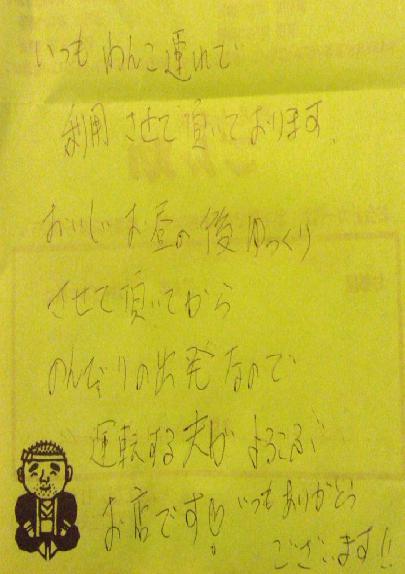 いつも わんこ連れで
利用 させて頂いております。
おいしいお昼の後ゆっくり
させて頂いてから
のんびりの出発なので
運転する夫が よろこぶ
お店です♡ いつもありがとう
ございます!!